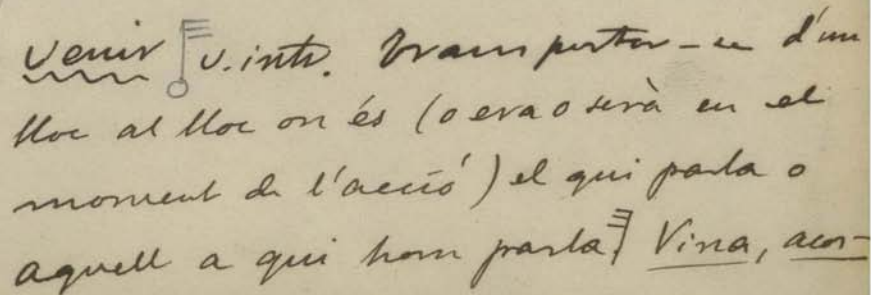 venir v. intr. Transportar-se d'un
lloc al lloc on és (o era o serà en el
moment de l'acció) el qui parla o
aquell a qui hom parla. Vina, acos-